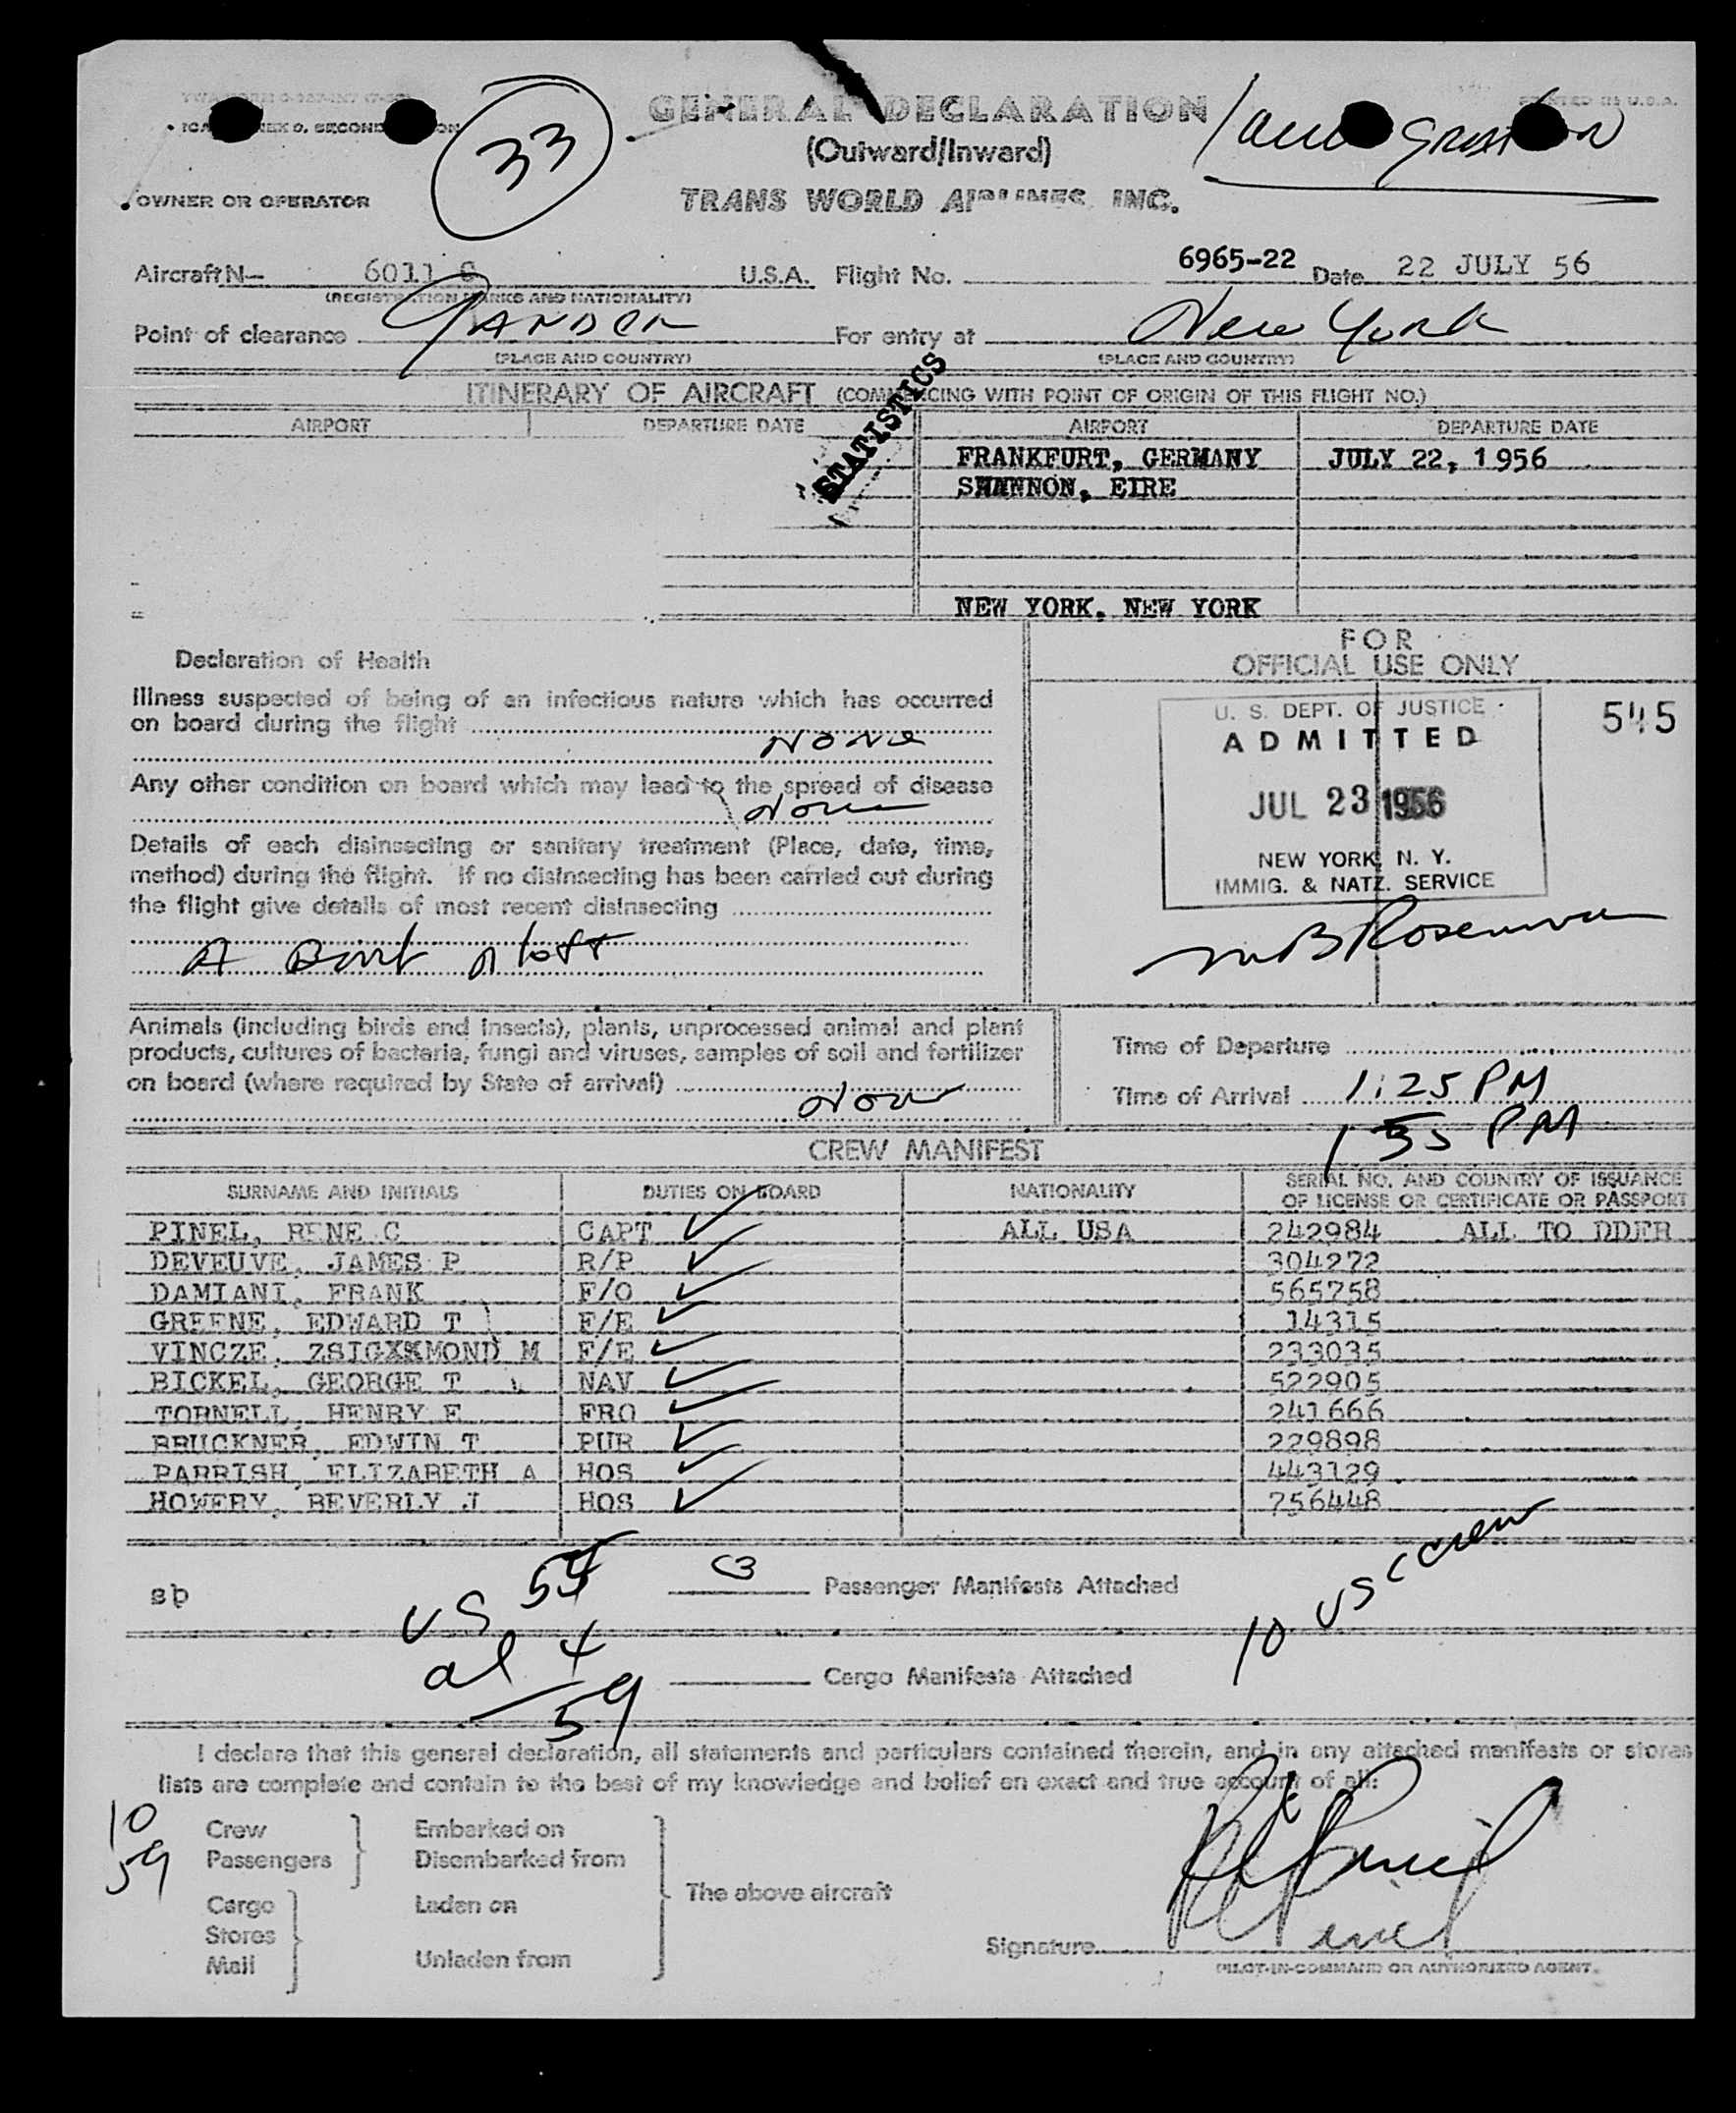 33
GENERAL DECLARATION
PRINTED IN U.S.A.
(Outward/Inward)
OWNER OR OPERATOR
TRANS WORLD AIRLINES, INC.
Aircraft N— 6011 C U.S.A. Flight No. 6965-22 Date 22 JULY 56
(REGISTRATION MARKS AND NATIONALITY)
Point of clearance GANDER For entry at New York
(PLACE AND COUNTRY) (PLACE AND COUNTRY)
STATISTICS
ITINERARY OF AIRCRAFT (COMMENCING WITH POINT OF ORIGIN OF THIS FLIGHT NO.)
AIRPORT DEPARTURE DATE AIRPORT DEPARTURE DATE
FRANKFURT, GERMANY JULY 22, 1956
SHANNON, EIRE
NEW YORK, NEW YORK
Declaration of Health
Illness suspected of being of an infectious nature which has occurred
on board during the flight
None
Any other condition on board which may lead to the spread of disease
None
Details of each disinsecting or sanitary treatment (Place, date, time,
method) during the flight. If no disinsecting has been carried out during
the flight give details of most recent disinsecting
FOR
OFFICIAL USE ONLY
U. S. DEPT. OF JUSTICE
ADMITTED
JUL 23 1956
NEW YORK, N. Y.
IMMIG. & NATZ. SERVICE
545
Animals (including birds and insects), plants, unprocessed animal and plant
products, cultures of bacteria, fungi and viruses, samples of soil and fertilizer
on board (where required by State of arrival)
None
Time of Departure
Time of Arrival 1:25 PM
1 35 PM
CREW MANIFEST
SURNAME AND INITIALS DUTIES ON BOARD NATIONALITY SERIAL NO. AND COUNTRY OF ISSUANCE
OF LICENSE OR CERTIFICATE OR PASSPORT
PINEL, RENE C CAPT ALL USA 242984 ALL TO DDFR
DEVEUVE, JAMES P R/P 304272
DAMIANI, FRANK F/O 565758
GREENE, EDWARD T F/E 14315
VINCZE, ZSIGXKMOND M F/E 233035
BICKEL, GEORGE T NAV 522905
TORNELL, HENRY E FRO 241666
BRUCKNER, EDWIN T PUR 229898
PARRISH, ELIZABETH A HOS 443129
HOWERY, BEVERLY J HOS 756448
sb
US 55
al 4
59
3 Passenger Manifests Attached
10 USC crew
Cargo Manifests Attached
I declare that this general declaration, all statements and particulars contained therein, and in any attached manifests or stores
lists are complete and contain to the best of my knowledge and belief an exact and true account of all:
10 Crew Embarked on
59 Passengers Disembarked from
The above aircraft
Cargo Laden on
Stores
Mail Unladen from
Signature R C Pinel
PILOT-IN-COMMAND OR AUTHORIZED AGENT.